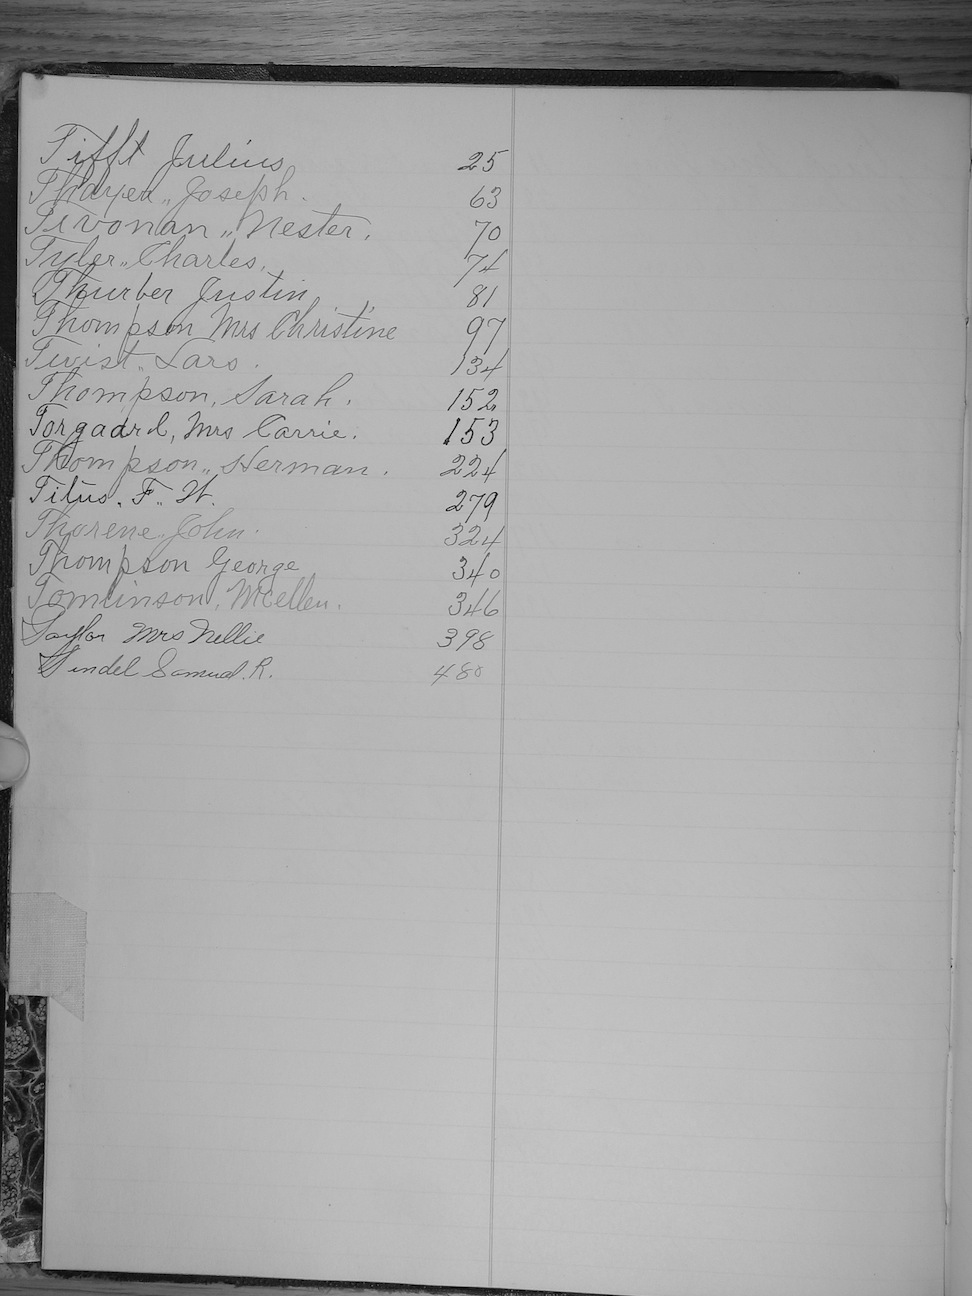 Tifft Julius 25
Thayer,, Joseph. 63
Tervonan,, Nester. 70
Tyler,, Charles. 74
Thurber Justin 81
Thompson Mrs Christine 97
Twist,, Lars. 134
Thompson, Sarah. 152
Torgaard, Mrs Carrie. 153
Thompson,, Herman. 224
Titus. F. W. 279
Thorene, John. 324
Thompson George 340
Tomlinson, 346
Taylor Mrs Nellie 398
Tindel Samuel. R. 480